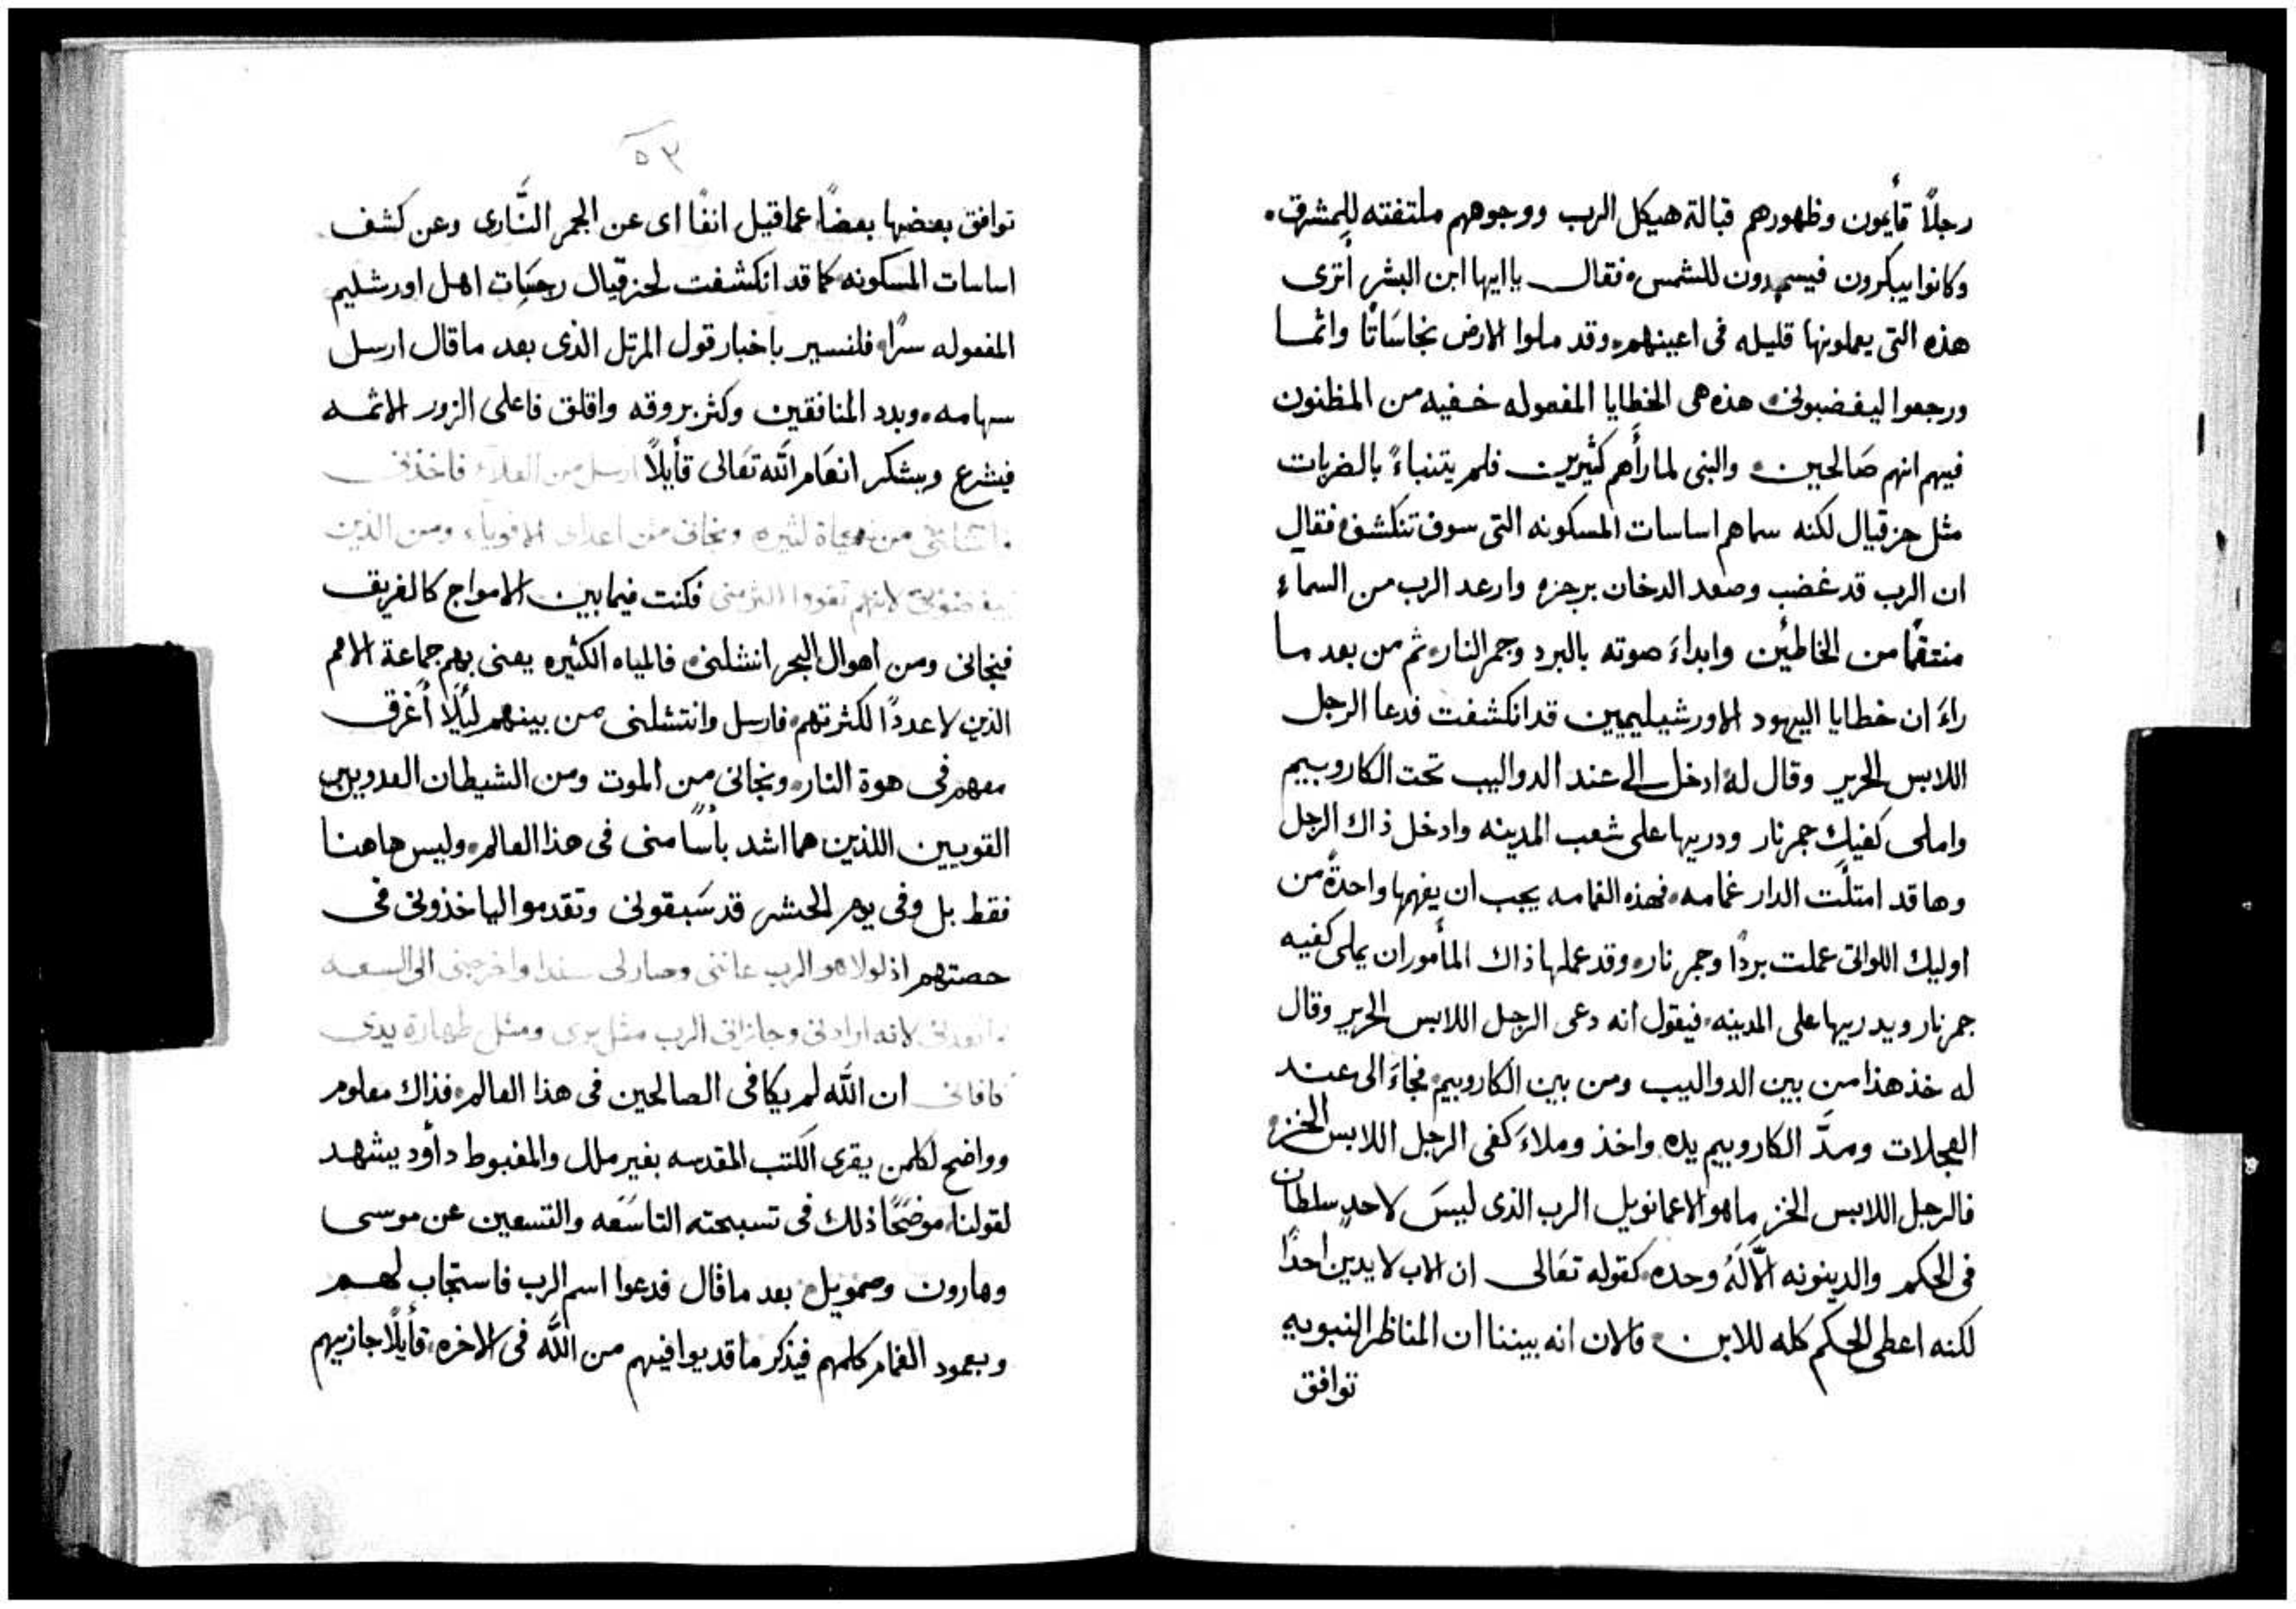 رجلًا قأيمون وظهورهم قبالة هيكل الرب ووجوههم ملتفته للمشرق.
وكانوا يبكرون فيسجدون للشمس، فقال يا ايها ابن البشر أترى
هذه التى يعملونها قليله فى اعينهم، وقد ملوا الارض نجاسَاتًا واثما
ورجعوا ليغضبونى، هذه هى الخطايا المفعوله خفيه من المظنون
فيهم انهم صَالحين، والنبى لما رأَهم كثيرين فلم يتنباءً بالضربات
مثل حزقيال لكنه سماهم اساسات المسكونه التى سوف تنكشف، فقال
ان الرب قد غضب وصعد الدخان برجزه وارعد الرب من السماء
منتقمًا من الخاطئين وابداءَ صوته بالبرد وجمر النار، ثم من بعد ما
راءَ ان خطايا اليهود الاورشيليميين قد انكشفت فدعا الرجل
اللابس الحرير وقال له، ادخل الى عند الدواليب تحت الكاروبيم
واملى كفيك جمر نار ودريها على شعب المدينه وادخل ذاك الرجل
وها قد امتلَت الدار غمامه، فهذه الغمامه يجب ان يفهمها واحدةً من
اوليك اللواتى عملت بردًا وجمر نار، وقد عملها ذاك المأموران يملى كفيه
جمر نار ويدريها على المدينه، فيقول انه دعى الرجل اللابس الحرير وقال
له خذ هذا من بين الدواليب ومن بين الكاروبيم، فجاءَ الى عند
العجلات ومدَّ الكاروبيم يده واخذ وملاءَ كفى الرجل اللابس الخز،
فالرجل اللابس الخز ما هو الاعمانويل الرب الذى ليسَ لاحدٍ سلطان
فى الحكم والدينونه الّا لَهُ وحده، كقوله تعَالى ان الاب لا يدين احدًا
لكنه اعطى الحكم كله للابن، فالان انه بيننا ان المناظر النبويه
توافق
٥٣
توافق بعضها بعضًا عما قيل انفًا اى عن الجمر النَّارى وعن كشف
اساسات المسكونه، كما قد انكشفت لحزقيال رجسَات اهل اورشليم
المفعوله سرًا، فلنسير باخبار قول المرتل الذى بعد ما قال ارسل
سهامه، وبدد المنافقين وكثر بروقه واقلق فاعلى الزور الاثمه
فيشرع ويشكر انعَام الله تعَالى قأيلًا ارسل من العلاء فاخذنى
وانتشلنى من مياه كثيره ونجانى من اعداى الاقوياء ومن الذين
يبغضونى لانهم تقووا اكثر منى فكنت فيما بين الامواج كالغريق
فنجانى ومن اهوال البحر انتشلنى، فالمياه الكثيره يعنى بهم جماعة الامم
الذين لا عددًا لكثرتهم، فارسل وانتشلنى من بينهم ليَلًا أغرق
معهم فى هوة النار، ونجانى من الموت ومن الشيطان العدوين
القويين اللذين هما اشد بأسًا منى فى هذا العالم، وليس هاهنا
فقط بل وفى يوم الحشر قد سَبقونى وتقدموا لياخذونى فى
حصتهم اذ لولا هو الرب عاننى وصار لى سندا واخرجنى الى السعه
وانقذنى لانه ارادنى وجازانى الرب مثل برى ومثل طهارة يدى
كافانى ان اللّه لم يكافى الصالحين فى هذا العالم، فذاك معلوم
وواضح لكلمن يقرى الكتب المقدسه بغير ملل والمغبوط دأود يشهد
لقولنا، موضحًا ذلك فى تسبحته التاسَعَه والتسعين عن موسى
وهارون وصمويل، بعد ما قال فدعوا اسم الرب فاستجاب لهم
وبعمود الغمام كلمهم فيذكر ما قد يوافيهم من اللّه فى الاخره، قأيلًا جازيهم